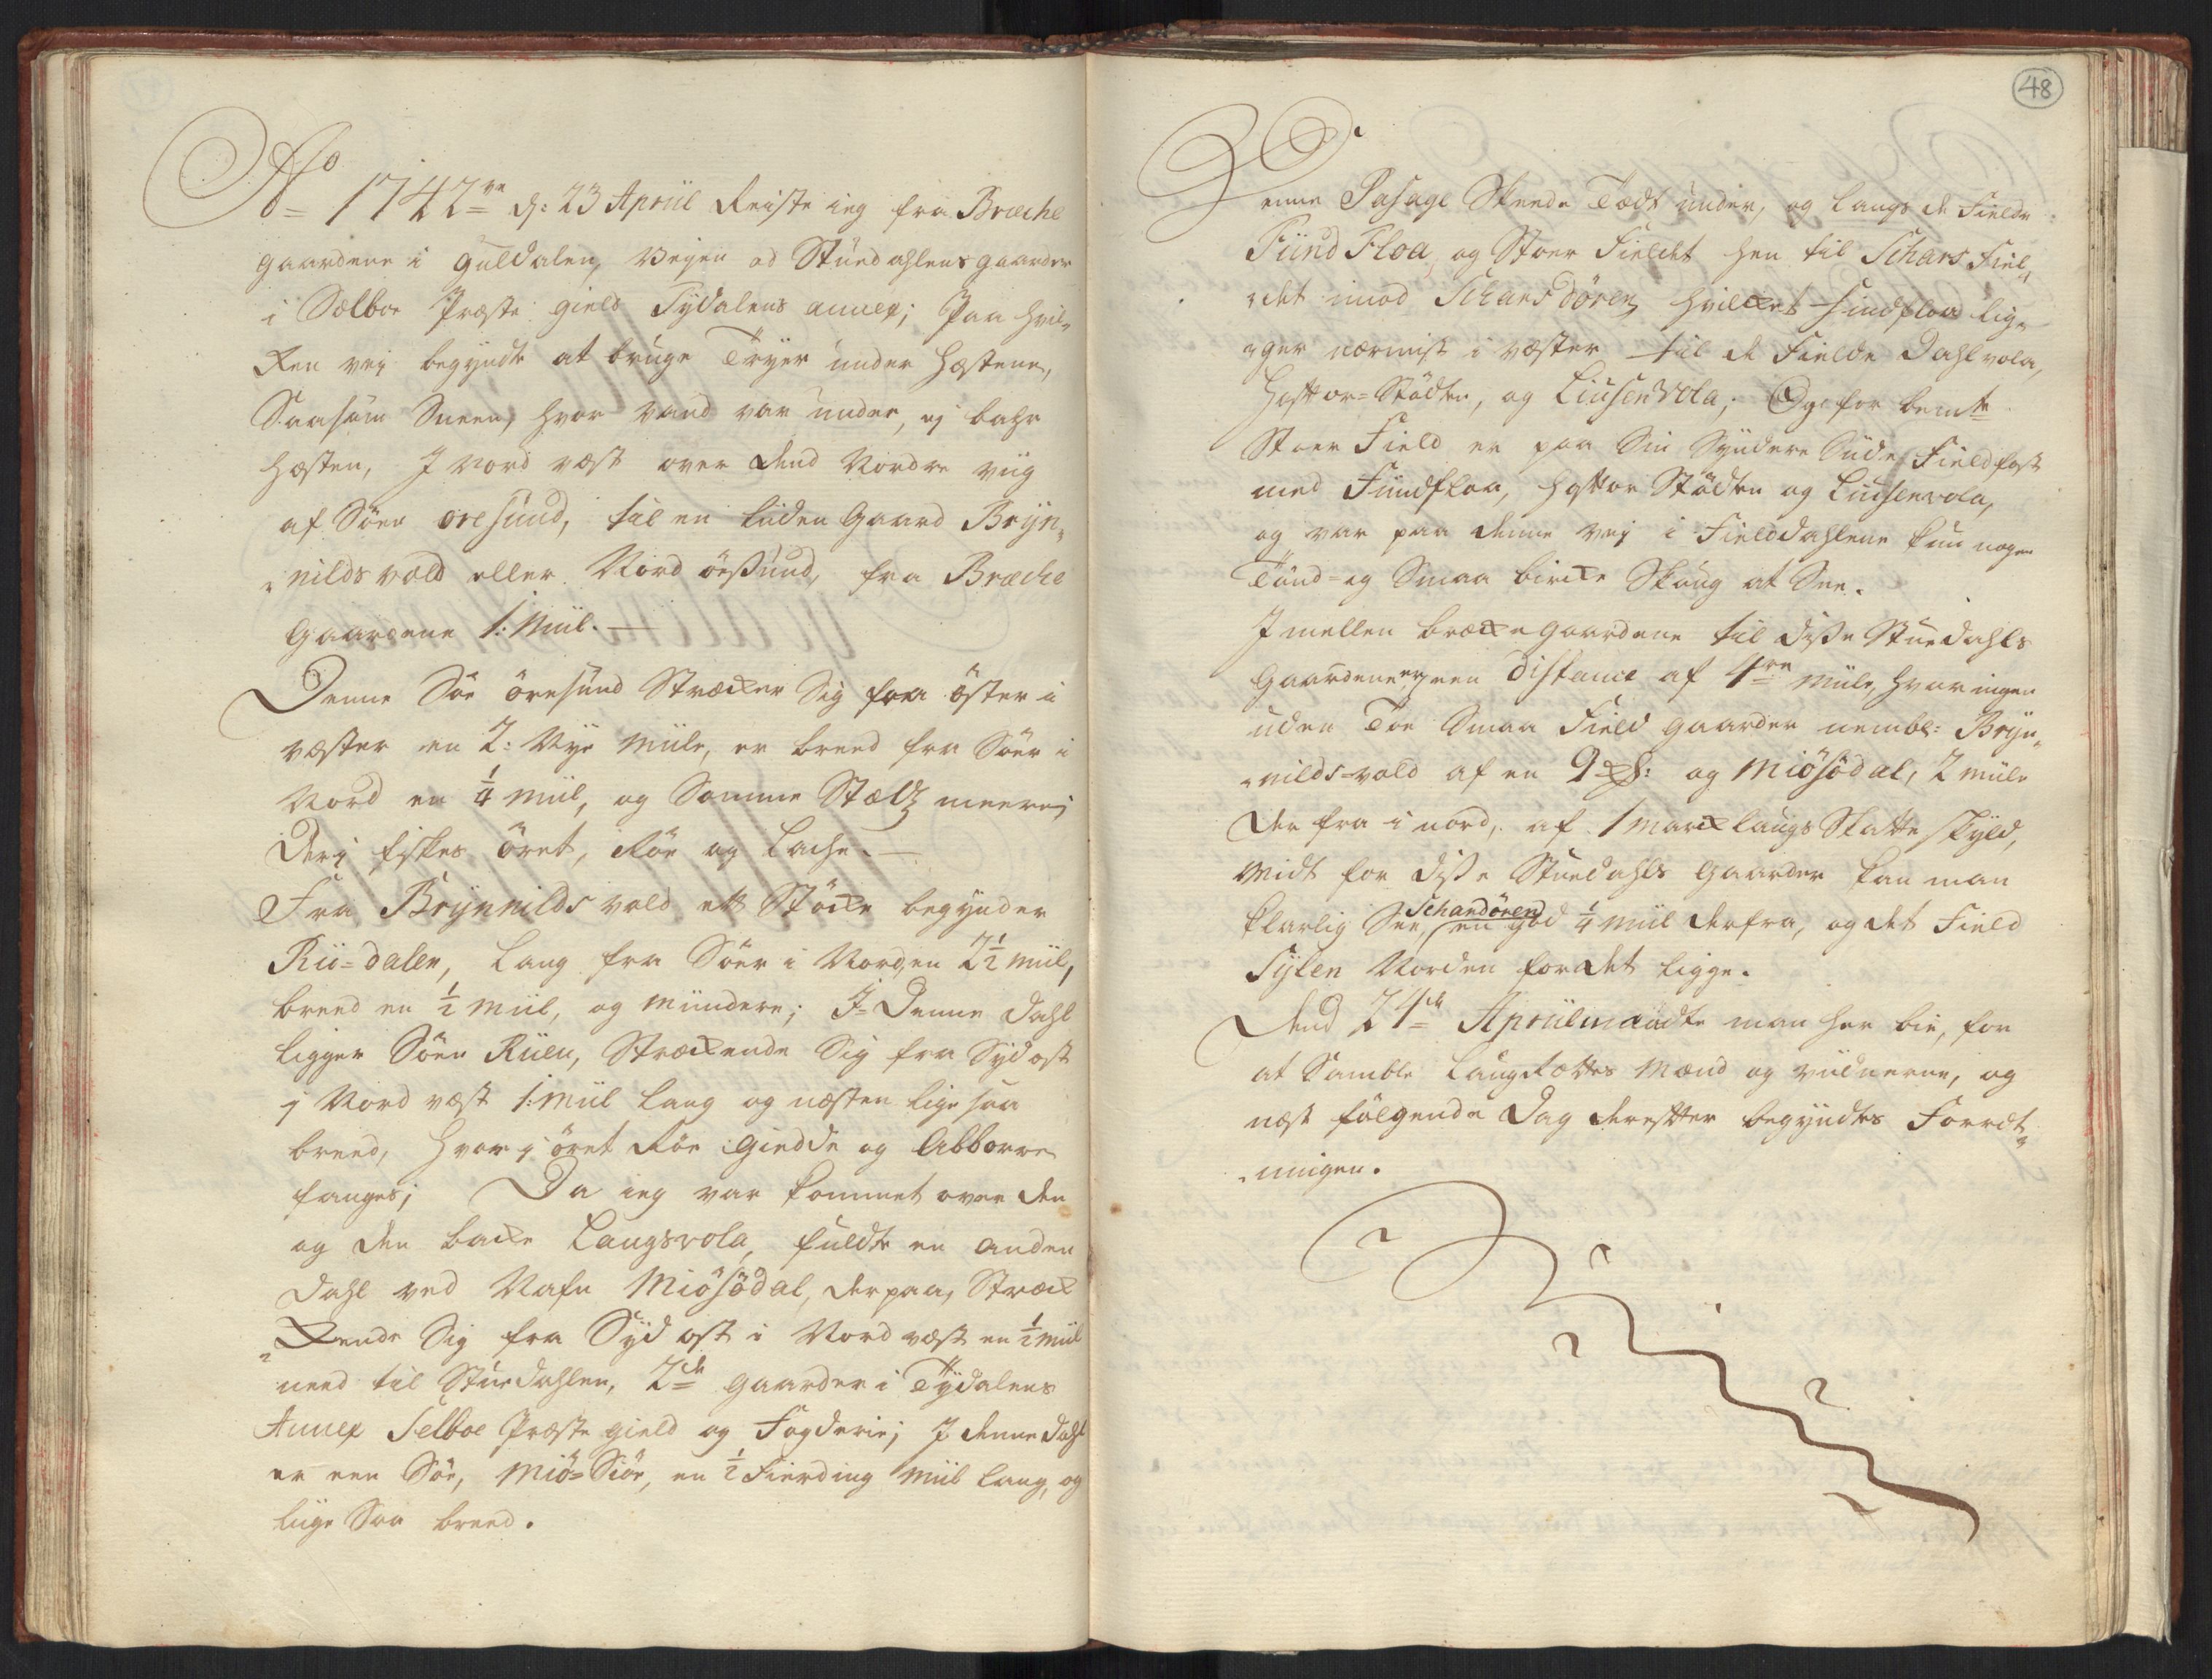 48
Ao 1742ve d: 23 Apriil Reiste ieg fra Bræche
gaardene i Guldalen, Veyen ad Stuedahlens gaarder
i Sælboe Præste gield Tydalens annex; Paa hvil„
ken vej begyndte at bruge Tryer under Hæstene,
Saasom Sneen, hvor vand var under, ej bahr
Hæsten, J Nord væst over dend Nordre viig
af Söen öresund, til en liden Gaard Bryn„
„nilds vold eller Nord öresund, fra Bræche
Gaardene 1: Miil. —
Denne Söe öresund Strecker Sig fra öster i
væster en 2: Nye Miile, er breed fra Söer i
Nord en 1/4 Miil, og Somme Stædz meere;
Derj fiskes öret, Röe og Lache. —
Fra Brynnilds vold ett Stöcke begynder
Rii=dalen, lang fra Söer i Norden 2 1/2 Miil,
breed en 1/2 Miil, og Mündere; J Denne Dahl
ligger Söen Riien, Streckende Sig fra Sydost
j Nord væst 1: Miil lang og næsten lige saa
breed, Hvor j öret Röe giedde og Abborre
fanges; Da ieg var kommet over den
og den backe Langsvola, fuldte en anden
Dahl ved Nafn Miösödal, derpaa, Stræck
„kende Sig fra Syd ost i Nord væst en 1/2 Miil
need til Stuedahlen, 2de gaarder i Tydalens
Annex Selboe Præste gield og Fogderie; J denne Dahl
er een Söe, Miö=Siöe, en 1/2 Fierding Miil lang, og
liige Saa breed.
Denne Pasage Skeede Tædt under, og langs de Fielde
Fiind Floa, og Stoer Fieldet hen til Schars Fiel„
„det imod Scharsdören, hvilckes Fiindfloa lig„
„ger nærmist i væster til de Fielde Dahlvola,
Hættor=Stödten, og Liusenvola; Og for bemte
Stoer Field er paa Sin Syndere Siide Fieldfast
med Fiindfloa, Hættor Stödten og Liusenvola,
og var paa denne vej i Fielddahlene kun nogen
Tünd= og Smaa bircke Skoug at See.
J mellem bræcke gaardene til disse Stuedahls
Gaardene er een Distance af 4re Miile, hvor ingen
uden Toe Smaa Field gaarder nembl: Bryn„
„nilds=vold af en og Miösödal, 2 Miile
der fra i nord, af 1 marcklaugs Skatte skyld,
Midt for disse Stuedahls Gaarder kan man
klarlig See, Schardören en god 1/4 Miil derfra, og det Field
Sylen Norden for det ligge.
Dend 24de Apriil maadte man her bie, for
at Samble Laugrættes Mænd og viidnerne, og
næst fölgende Dag derefter begyndtes Forrett„
„ningen.